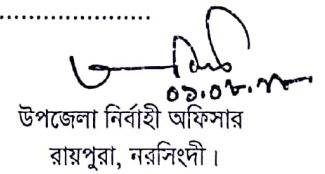 উপজেলা নির্বাহী অফিসার
রায়পুরা, নরসিংদী।